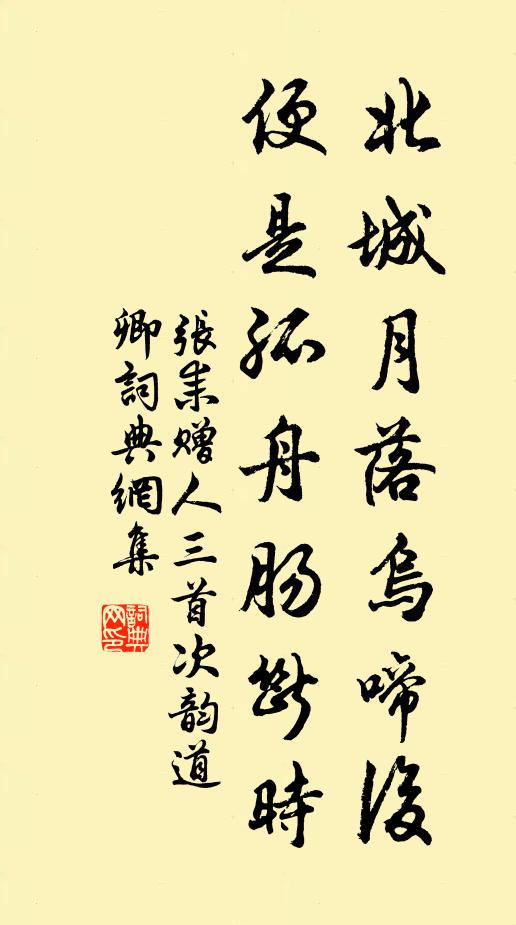 北城月落烏啼後
便是孤舟肠斷時
張耒赠人三首次韵道
卿詞典網集
詞典
网印